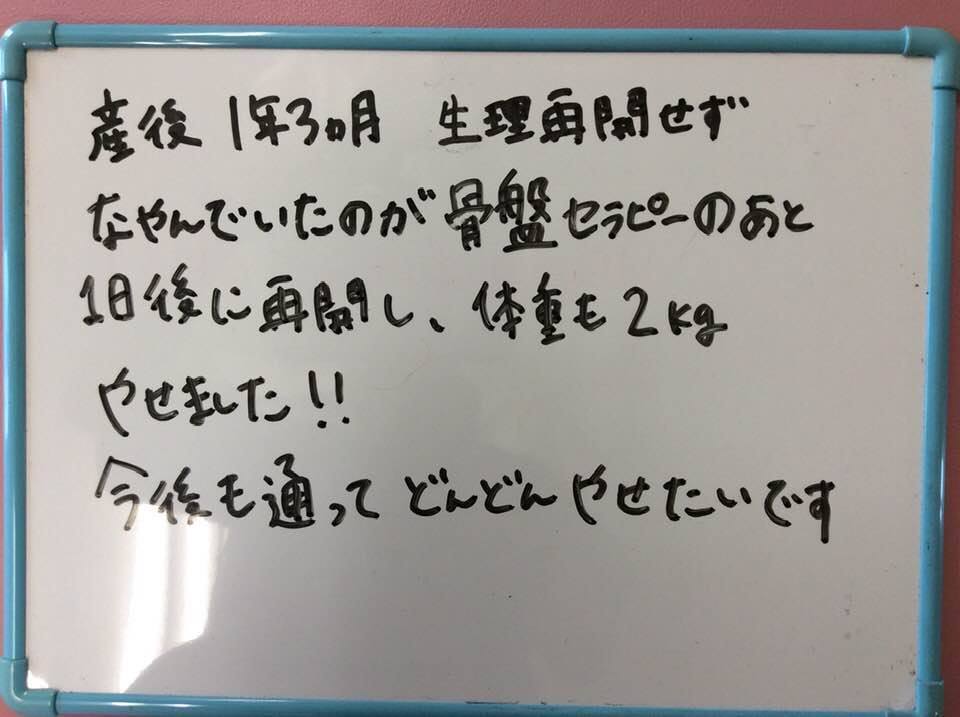 産後 1年3ヵ月 生理再開せず
なやんでいたのが骨盤セラピーのあと
1日後に再開し、体重も2kg
やせました!!
今後も通って どんどん やせたいです